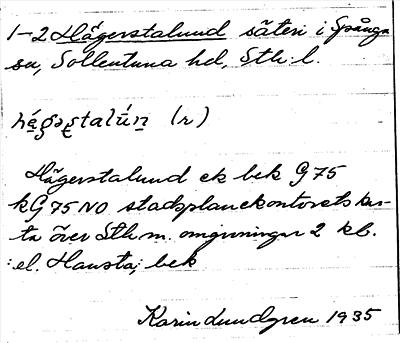 1-2 Hägerstalund säteri i Spånga
sn, Sollentuna hd, Sthl. l.
hę́gəʂtalún̠ (r)
Hägerstalund ek bek G 75
kG 75 NO stadsplanekontorets kar-
ta över Sthm. omgivningar 2 kb.
el. Hansta; bek
Karin Lundgren 1935